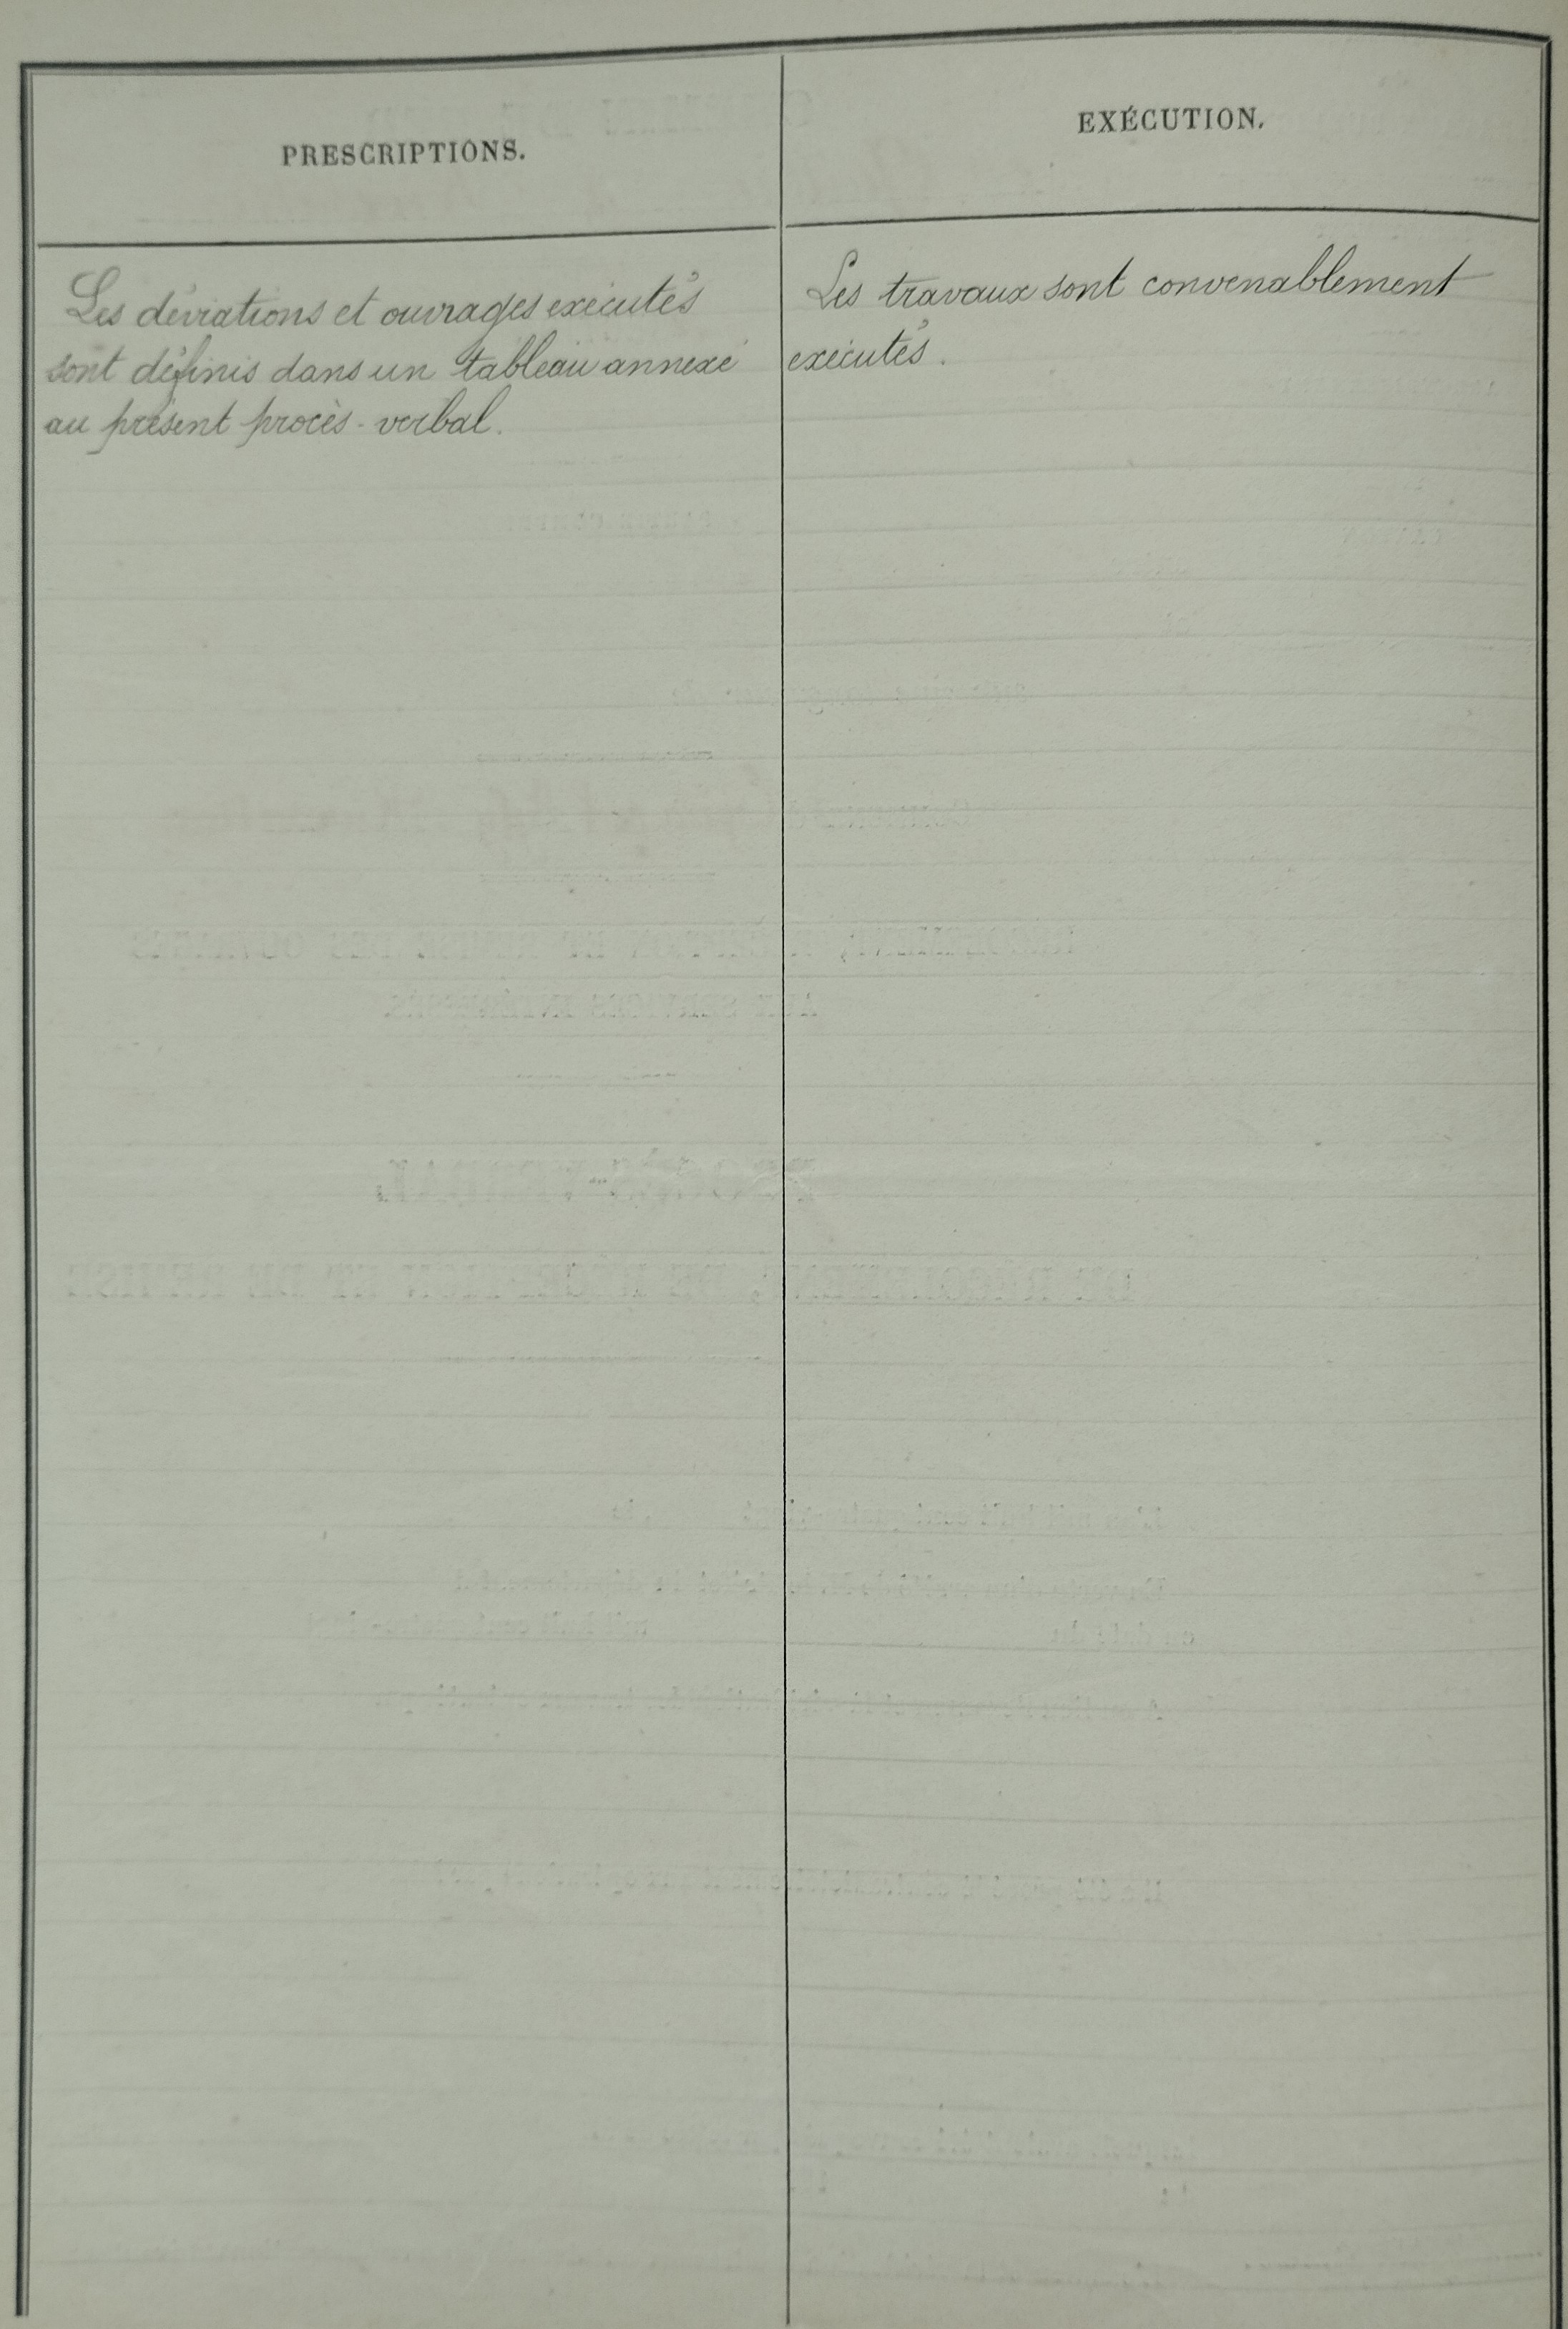 PRESCRIPTIONS.
Les déviations et ouvrages exécutés
sont définis dans un tableau annexé
au présent procès-verbal.
EXÉCUTION.
Les travaux sont convenablement
exécutés.